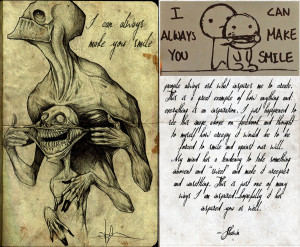 I can always
make you smile
I CAN
ALWAYS MAKE
YOU SMILE
people always ask what inspires me to create.
This is a good example of how anything and
everything is an inspiration. I just happened to
see this image above on facebook and thought
to myself how creepy it would be to be
forced to smile and against our will.
My mind has a tendency to take something
innocent and "sweet" and make it grotesque
and unsettling. This is just one of many
ways I am inspired...hopefully it has
inspired you as well.
~Shawn